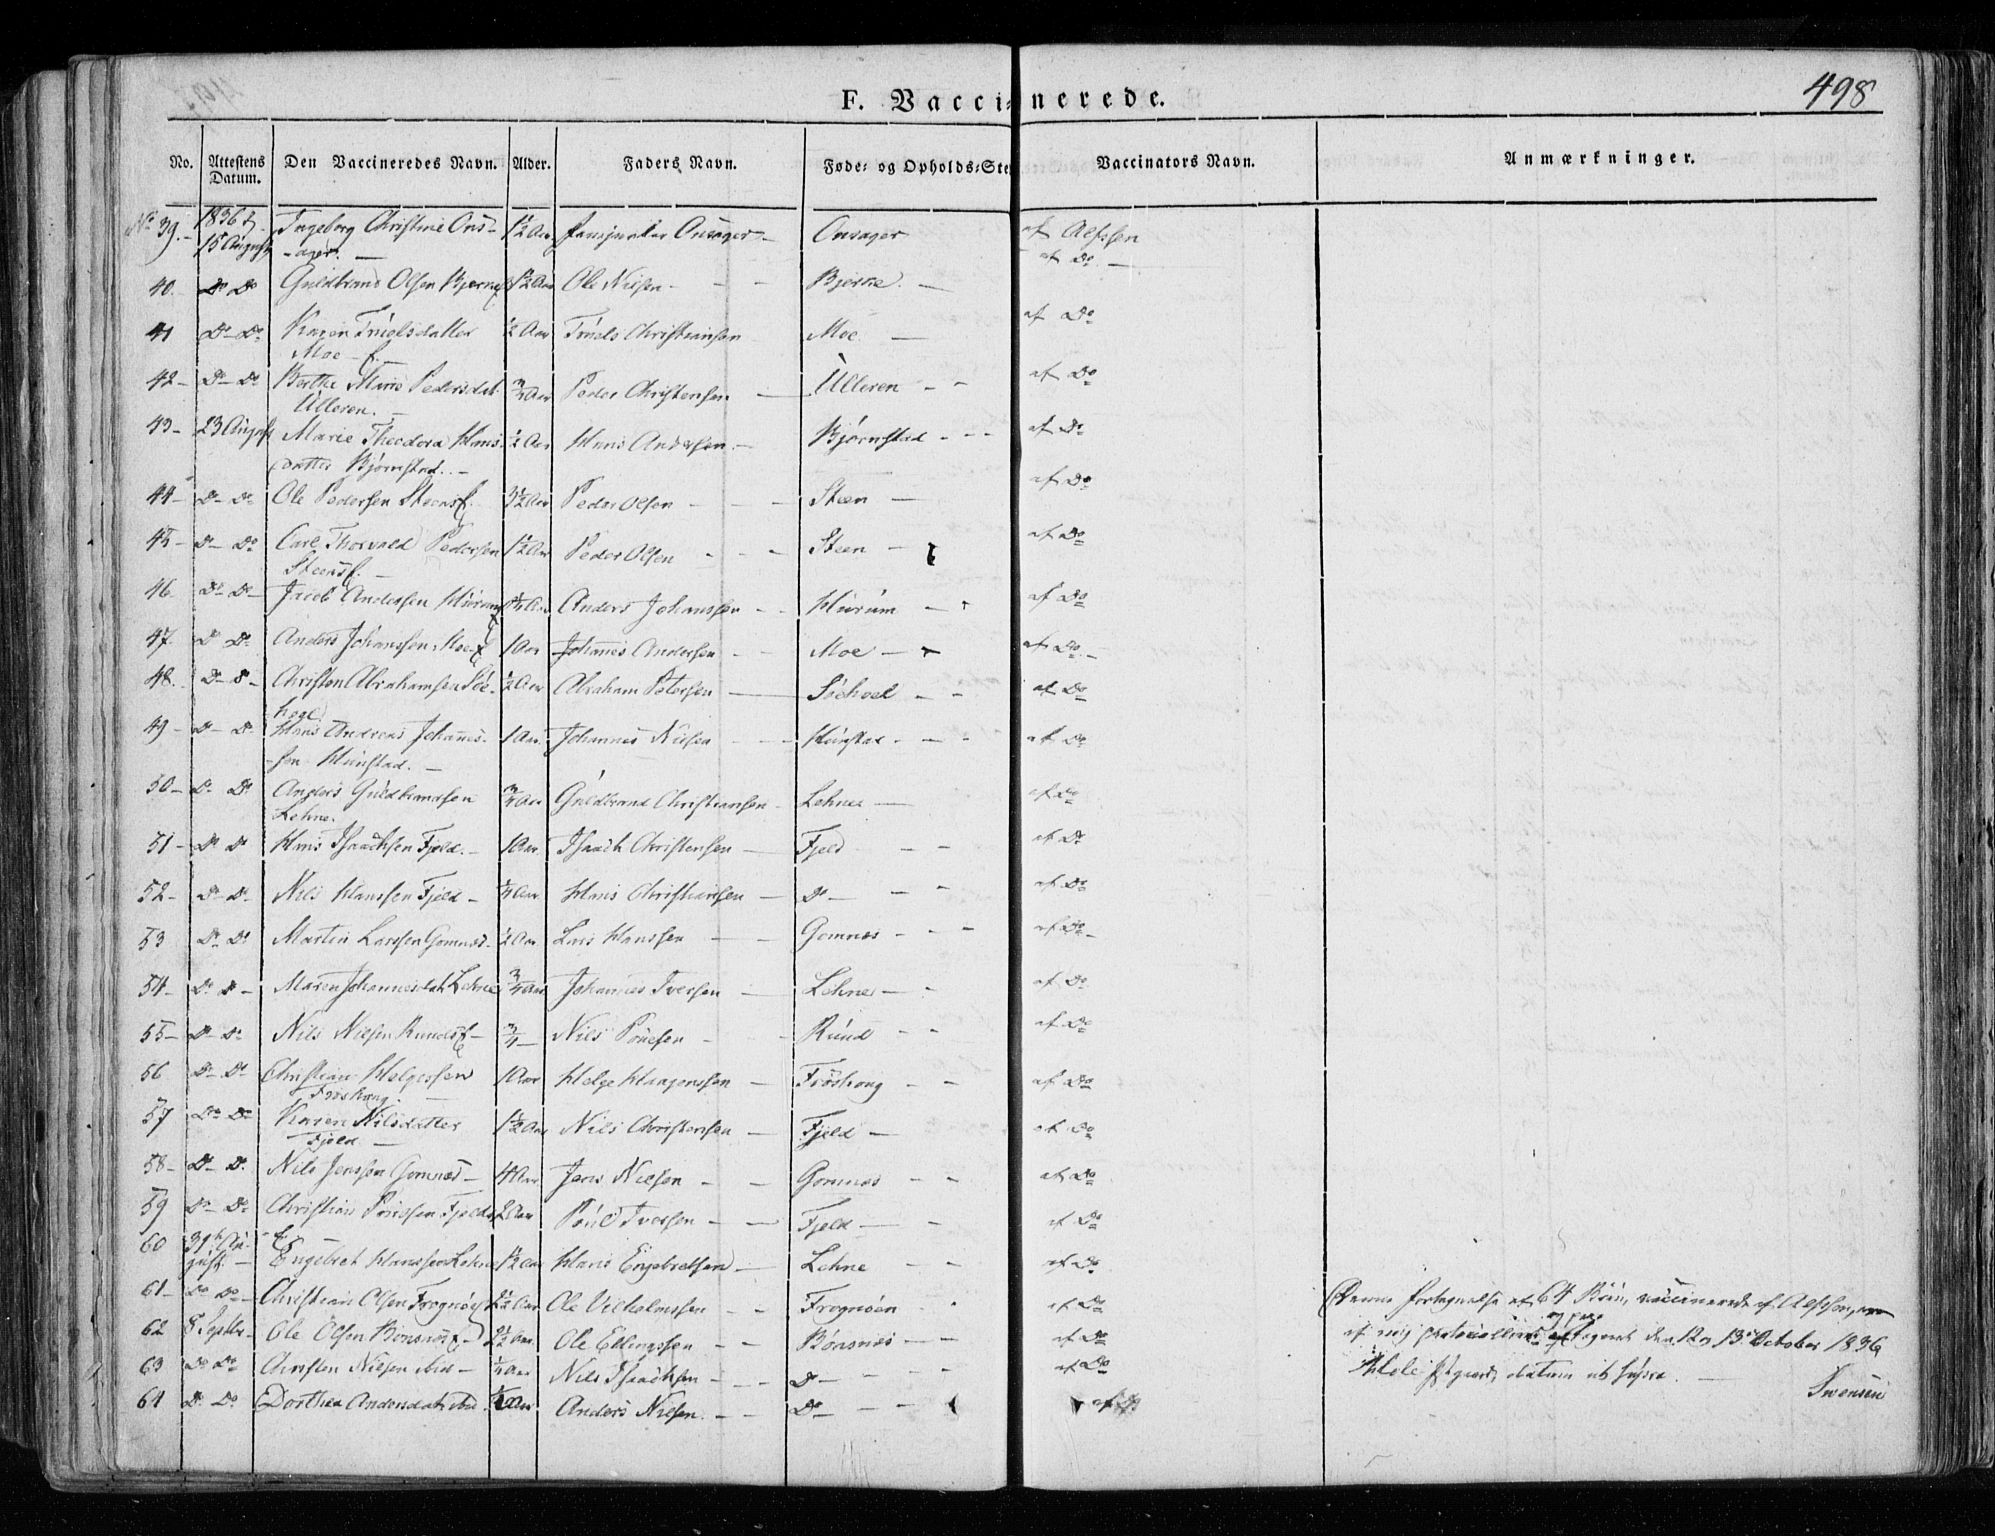 498
F. Vaccinerede.
No. Attestens Datum. Den Vaccineredes Navn. Alder. Faders Navn. Føde- og Opholds-Ste Vaccinators Navn. Anmærkninger.
No 39. 1836 15 August Ingeborg Christine Ons-ager. 1½ Aar Onsager Onsager af
40. Do Do Guldbrand Olsen Bjerke 1½ Aar Ole Nilsen Bjerke. af Do
41 Do Do Karen Truelsdatter Moe ½ Aar Truels Christiansen Moe af Do
42 Do Do Berthe Marie Pedersdat. Ulleren. ¾ Aar Peder Christensen Ulleren af Do
43 23 August Marie Theodora Hansdatter Bjørnstad. ½ Aar Hans Andersen Bjørnstad af Do
44 Do Do Ole Pedersen Steens 3½ Aar Peder Olsen Steen af Do
45 Do Do Carl Thorvald Pedersen Steens 1½ Aar Peder Olsen Steen af Do
46 Do Do Jacob Andersen Hurum Aar Anders Johansen Hurum af Do
47. Do Do Anders Johansen Moe 1 Aar Johanes Andersen Moe af Do
48. Do Do Christen Abrahamsen ½ Aar Abraham Petersen af Do
49 Do Do Hans Andreas Johannes-sen Hunstad. 1 Aar Johannes Nilsen Hunstad af Do
50 Do Do Anders Guldbrandsen Lehne. ¾ Aar Guldbrand Christiansen Lehne af Do
51 Do Do Hans Isaachsen Fjeld. 1 Aar Isaach Christensen Fjeld af Do
52 Do Do Nils Hanssen Fjeld ¼ Aar Hans Christiansen Do af Do
53 Do Do Martin Larssen Gomnæs ½ Aar Lars Hanssen Gomnæs af Do
54 Do Do Maren Johannesdat. Lehne ¾ Aar Johannes Iversen Lehne af Do
55 Do Do Nils Nilsen Runds ¾ Nils Rund af Do
56 Do Do Christian Helgessen Frøshaug 1 Aar Helge Haagenssen Frøshaug af Do
57 Do Do Karen Nilsdatter Fjeld 1½ Aar Nils Christensen Fjeld af Do
58 Do Do Nils Jenssen Gomnæs 4 Aar Jens Nielsen Gomnæs af Do
59 Do Do Christian Poulssen Fjeld 2 Aar Poul Iversen Fjeld af Do
60 31te August Engebret Hanssen Lehne 1½ Aar Hans Engebretsen Lehne af Do
61 Do Do Christian Olsen Frognøe Aar Ole Vilhelmssen Frognøen af Do
62 8 Septbr Ole Olsen Bønsnæs Aar Ole Ellingssen Bønsnæs af Do
63 Do Do Christen Nielsen ibid ¼ Aar Nils Isaachsen Do af Do
64 Do Do Dorthea Andersdatt. ibd Aar Anders Nilsen Do af Do
Denne Fortegnelse af 64 Børn, vaccinerede af
af mig den 12 og 13 October 1836
Hole Pgaard, datum ut supra.
Svensen